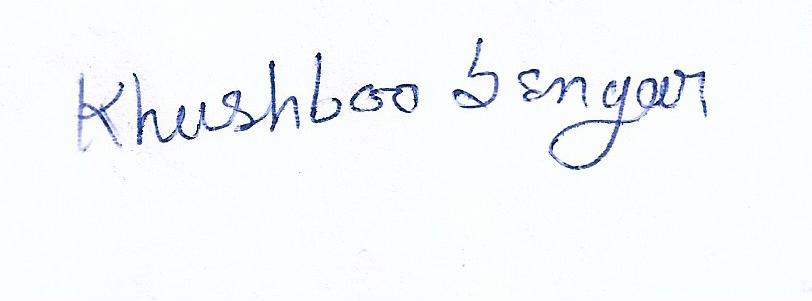 Khushboo Sengar